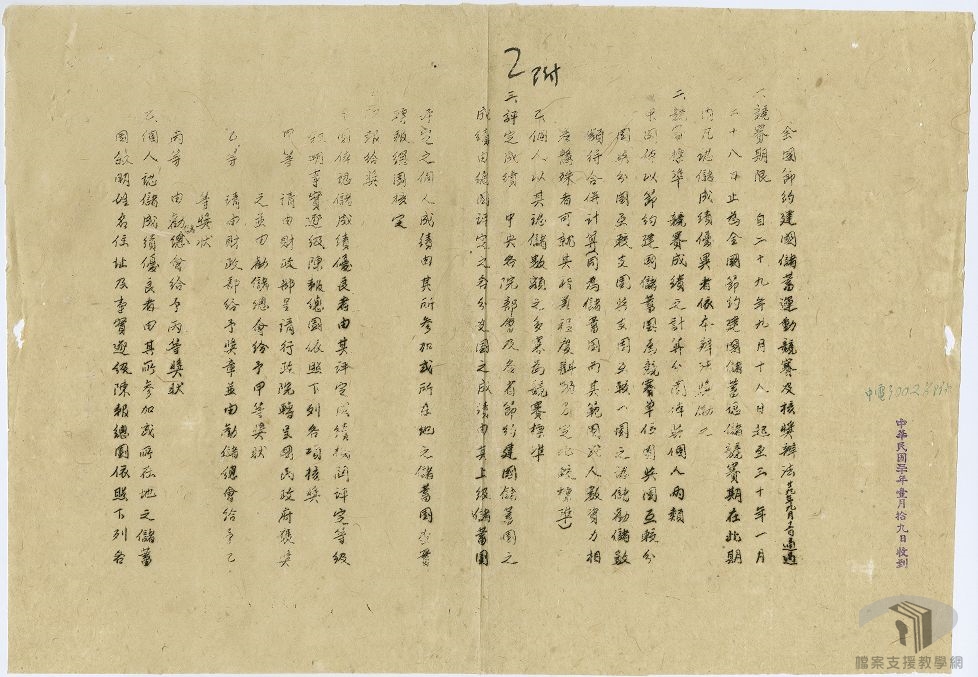 2附
全國節約建國儲蓄運動競賽及核獎辦法 廿九年九月 日通過
一、競賽期限 自二十九年九月十八日起至三十年一月
二十八日止為全國節約建國儲蓄認儲競賽期在此期
內凡認儲成績優異者依本辦法獎勵之
二、競賽標準 競賽成績之計算分團體與個人兩類
團體以節約建國儲蓄團為競賽單位團與團互較分
團與分團互較支團與支團互較以團之認儲勸儲數
額得合併計算同為儲蓄團而其範圍或人數資力相
差懸殊者可就其所差程度斟酌另定比較標準
個人以其認儲數額之多寡為競賽標準
三、評定成績 中央各院部會及各省節約建國儲蓄團之
成績由總團評定之各分支團之成績由其上級儲蓄團
評定之個人成績由其所參加或所在地之儲蓄團查實
陳報總團核定
報給獎
團體認儲成績優良者由其評定成績機關評定等級
敘明事實遞級陳報總團依照下列各項核獎
甲等 請由財政部呈請行政院轉呈國民政府褒獎
之並由勸儲總會給予甲等獎狀
乙等 請由財政部給予獎章並由勸儲總會給予乙
等獎狀
丙等 由勸儲總會給予丙等獎狀
個人認儲成績優良者由其所參加或所在地之儲蓄
團敘明姓名住址及事實遞級陳報總團依照下列各
中電3002
中華民國三十年壹月拾九日收到
檔案支援教學網